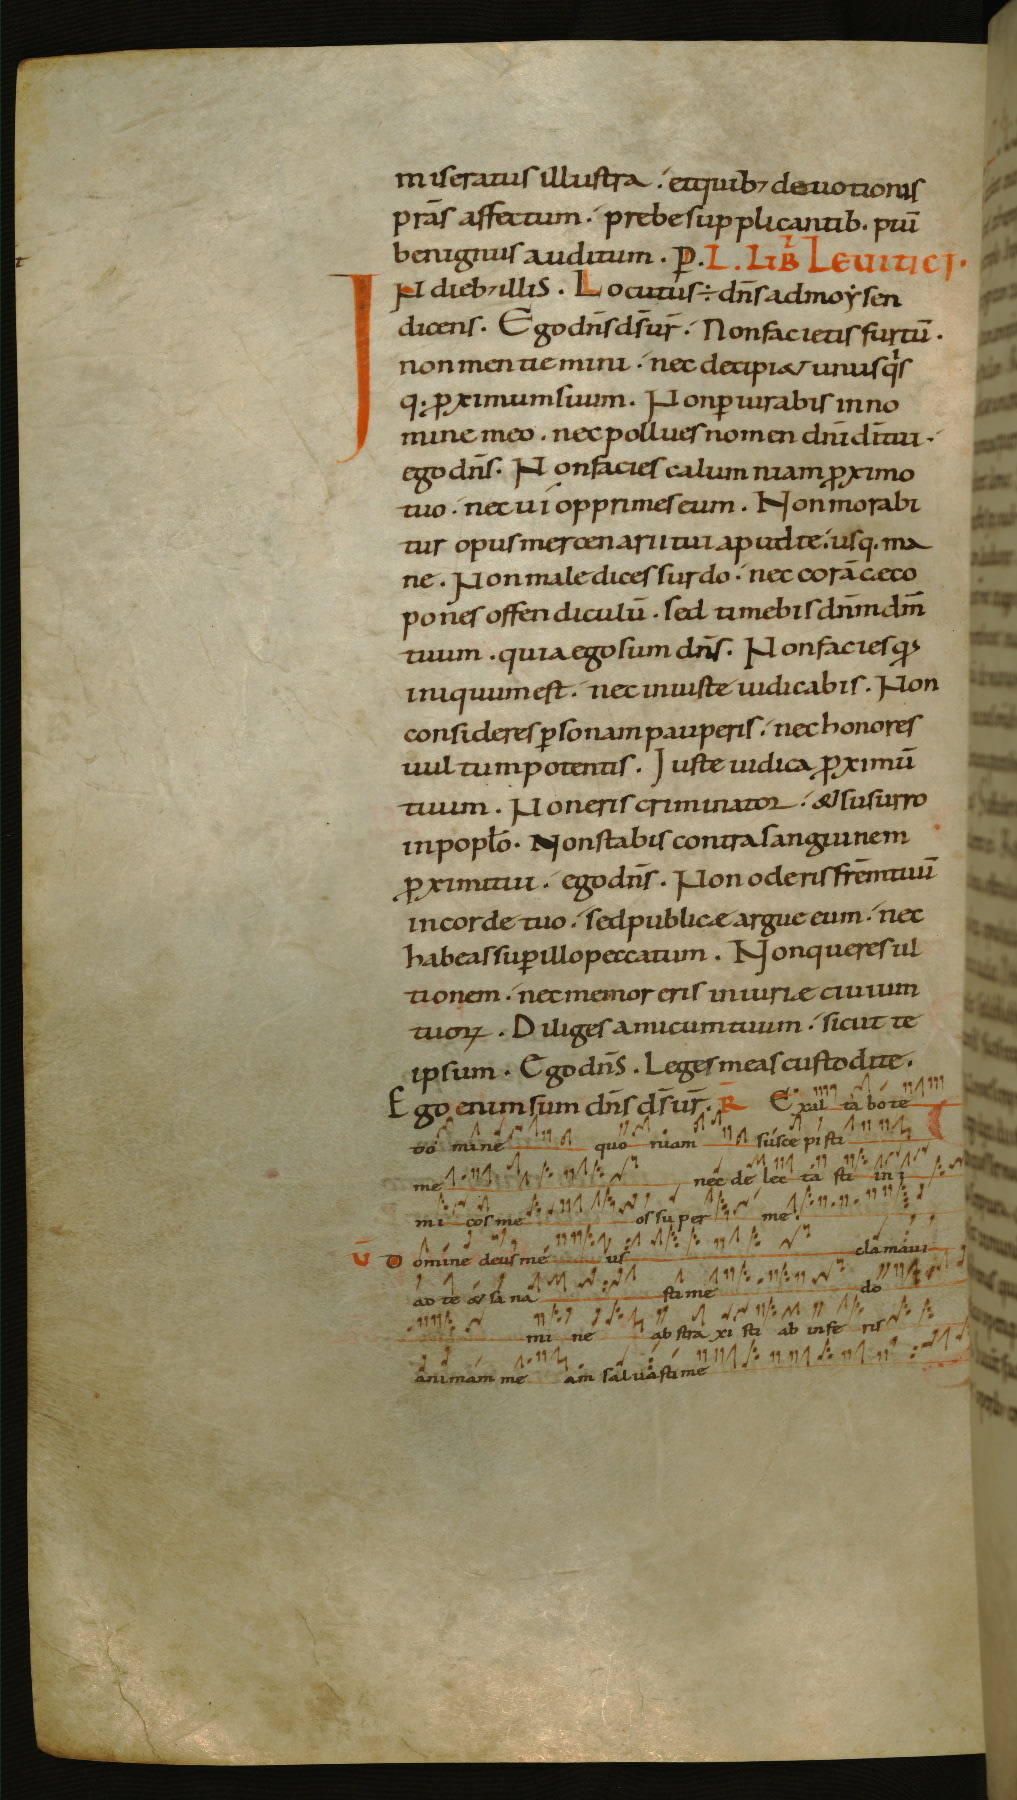 miseratus illustra. et quib; deuotionis
prās affectum. prebe supplicantib. piū
benignus auditum. P. L. LIB LEUITICI.
IN dieb; illis. Locutus: dn̄s ad moẏsen
dicens. Ego dn̄s ds̄ ur̄. Non facietis furtū.
non mentiemini. nec decipiet unusqˡs
q. ꝓximum suum. Non ꝑiurabis in no
mine meo. nec pollues nomen dn̄i dī tui.
ego dn̄s. Non facies calumniam ꝓximo
tuo. nec ui opprimes eum. Non morabi
tur opus mercenarii tui apud te. usq. ma
ne. Non maledices surdo. nec corā cęco
pones offendiculū. sed timebis dn̄m dm̄
tuum. quia ego sum dn̄s. Non facies qđ
iniquum est. nec iniuste iudicabis. Non
consideres ꝑsonam pauperis. nec honores
uultum potentis. Iuste iudica ꝓximū
tuum. Non eris criminator. & susurro
in popl̄o. Non stabis contra sanguinem
ꝓximi tui. ego dn̄s. Non oderis frēm tuū
in corde tuo. sed publicæ argue eum. nec
habeas suꝑ illo peccatum. Non queres ul
tionem. nec memor eris iniuriæ ciuium
tuoꝝ. Diliges amicum tuum. sicut te
ipsum. Ego dn̄s. Leges meas custodite.
Ego enim sum dn̄s ds̄ ur̄. R̄ Exal tabo te
do mine quo niam susce pisti
me nec de lec ta sti ini
mi cos me os su per me.
V̄ Domine deus me us clamaui
ad te & sa na sti me do
mi ne ab stra xi sti ab infe ris
animam me am saluasti me